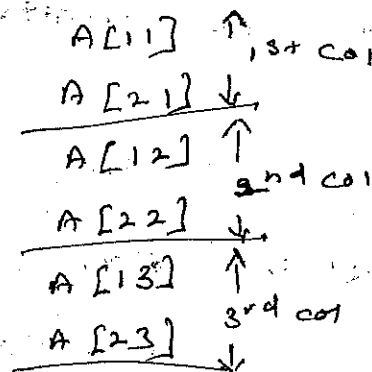 A[11] 1st col
A[21]
A[12]
2nd col
A[22]
A[13]
3rd col
A[23]